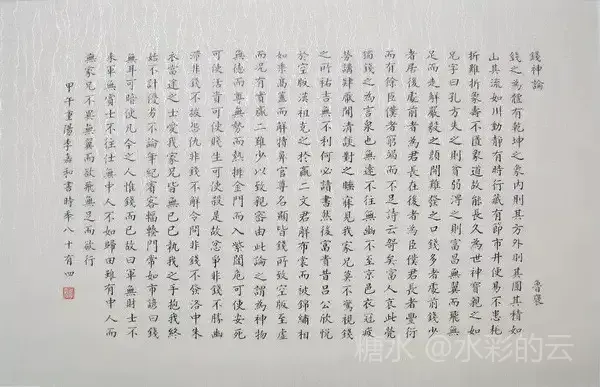 錢神論 魯褒
錢之為體有乾坤之象內則其方外則其圓其積如
山其流如川動靜有時行藏有節市井便易不患耗
折難折象壽不匱象道故能長久為世神寶親之如
兄字曰孔方失之則貧弱得之則富昌無翼而飛無
足而走解嚴毅之顏開難發之口錢多者處前錢少
者居後處前者為君長在後者為臣僕君長者豐衍
而有餘臣僕者窮竭而不足詩云哿矣富人哀此煢
獨錢之為言泉也無遠不往無幽不至京邑衣冠疲
勞講肄厭聞清談對之睡寐見我家兄莫不驚視錢
之所祐吉無不利何必讀書然後富貴昔呂公欣悅
於空版漢祖克之於嬴二文君解布裳而被錦繡相
如乘高蓋而解犢鼻官尊名顯皆錢所致空版至虛
而況有實嬴二雖少以致親密由此論之謂為神物
無德而尊無勢而熱排金門而入紫闥危可使安死
可使活貴可使賤生可使殺是故忿爭非錢不勝幽
滯非錢不拔怨仇非錢不解令問非錢不發洛中朱
衣當途之士愛我家兄皆無已已執我之手抱我終
始不計優劣不論年紀賓客輻輳門常如市諺曰錢
無耳可暗使凡今之人惟錢而已故曰軍無財士不
來軍無賞士不往仕無中人不如歸田雖有中人而
無家兄不異無翼而欲飛無足而欲行
甲午重陽李嘉和書時年八十有四
糖水 @水彩的云